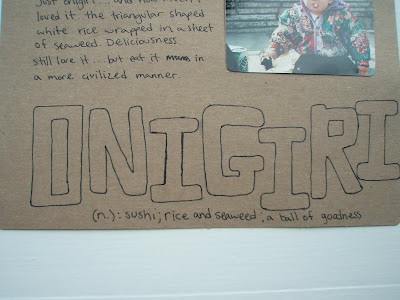 Just onigiri....and
loved it. the triangular shaped
white rice wrapped in a sheet
of seaweed. Deliciousness.
still love it...but eat it in
a more civilized manner.
ONIGIRI
(n.): sushi; rice and seaweed; a ball of goodness